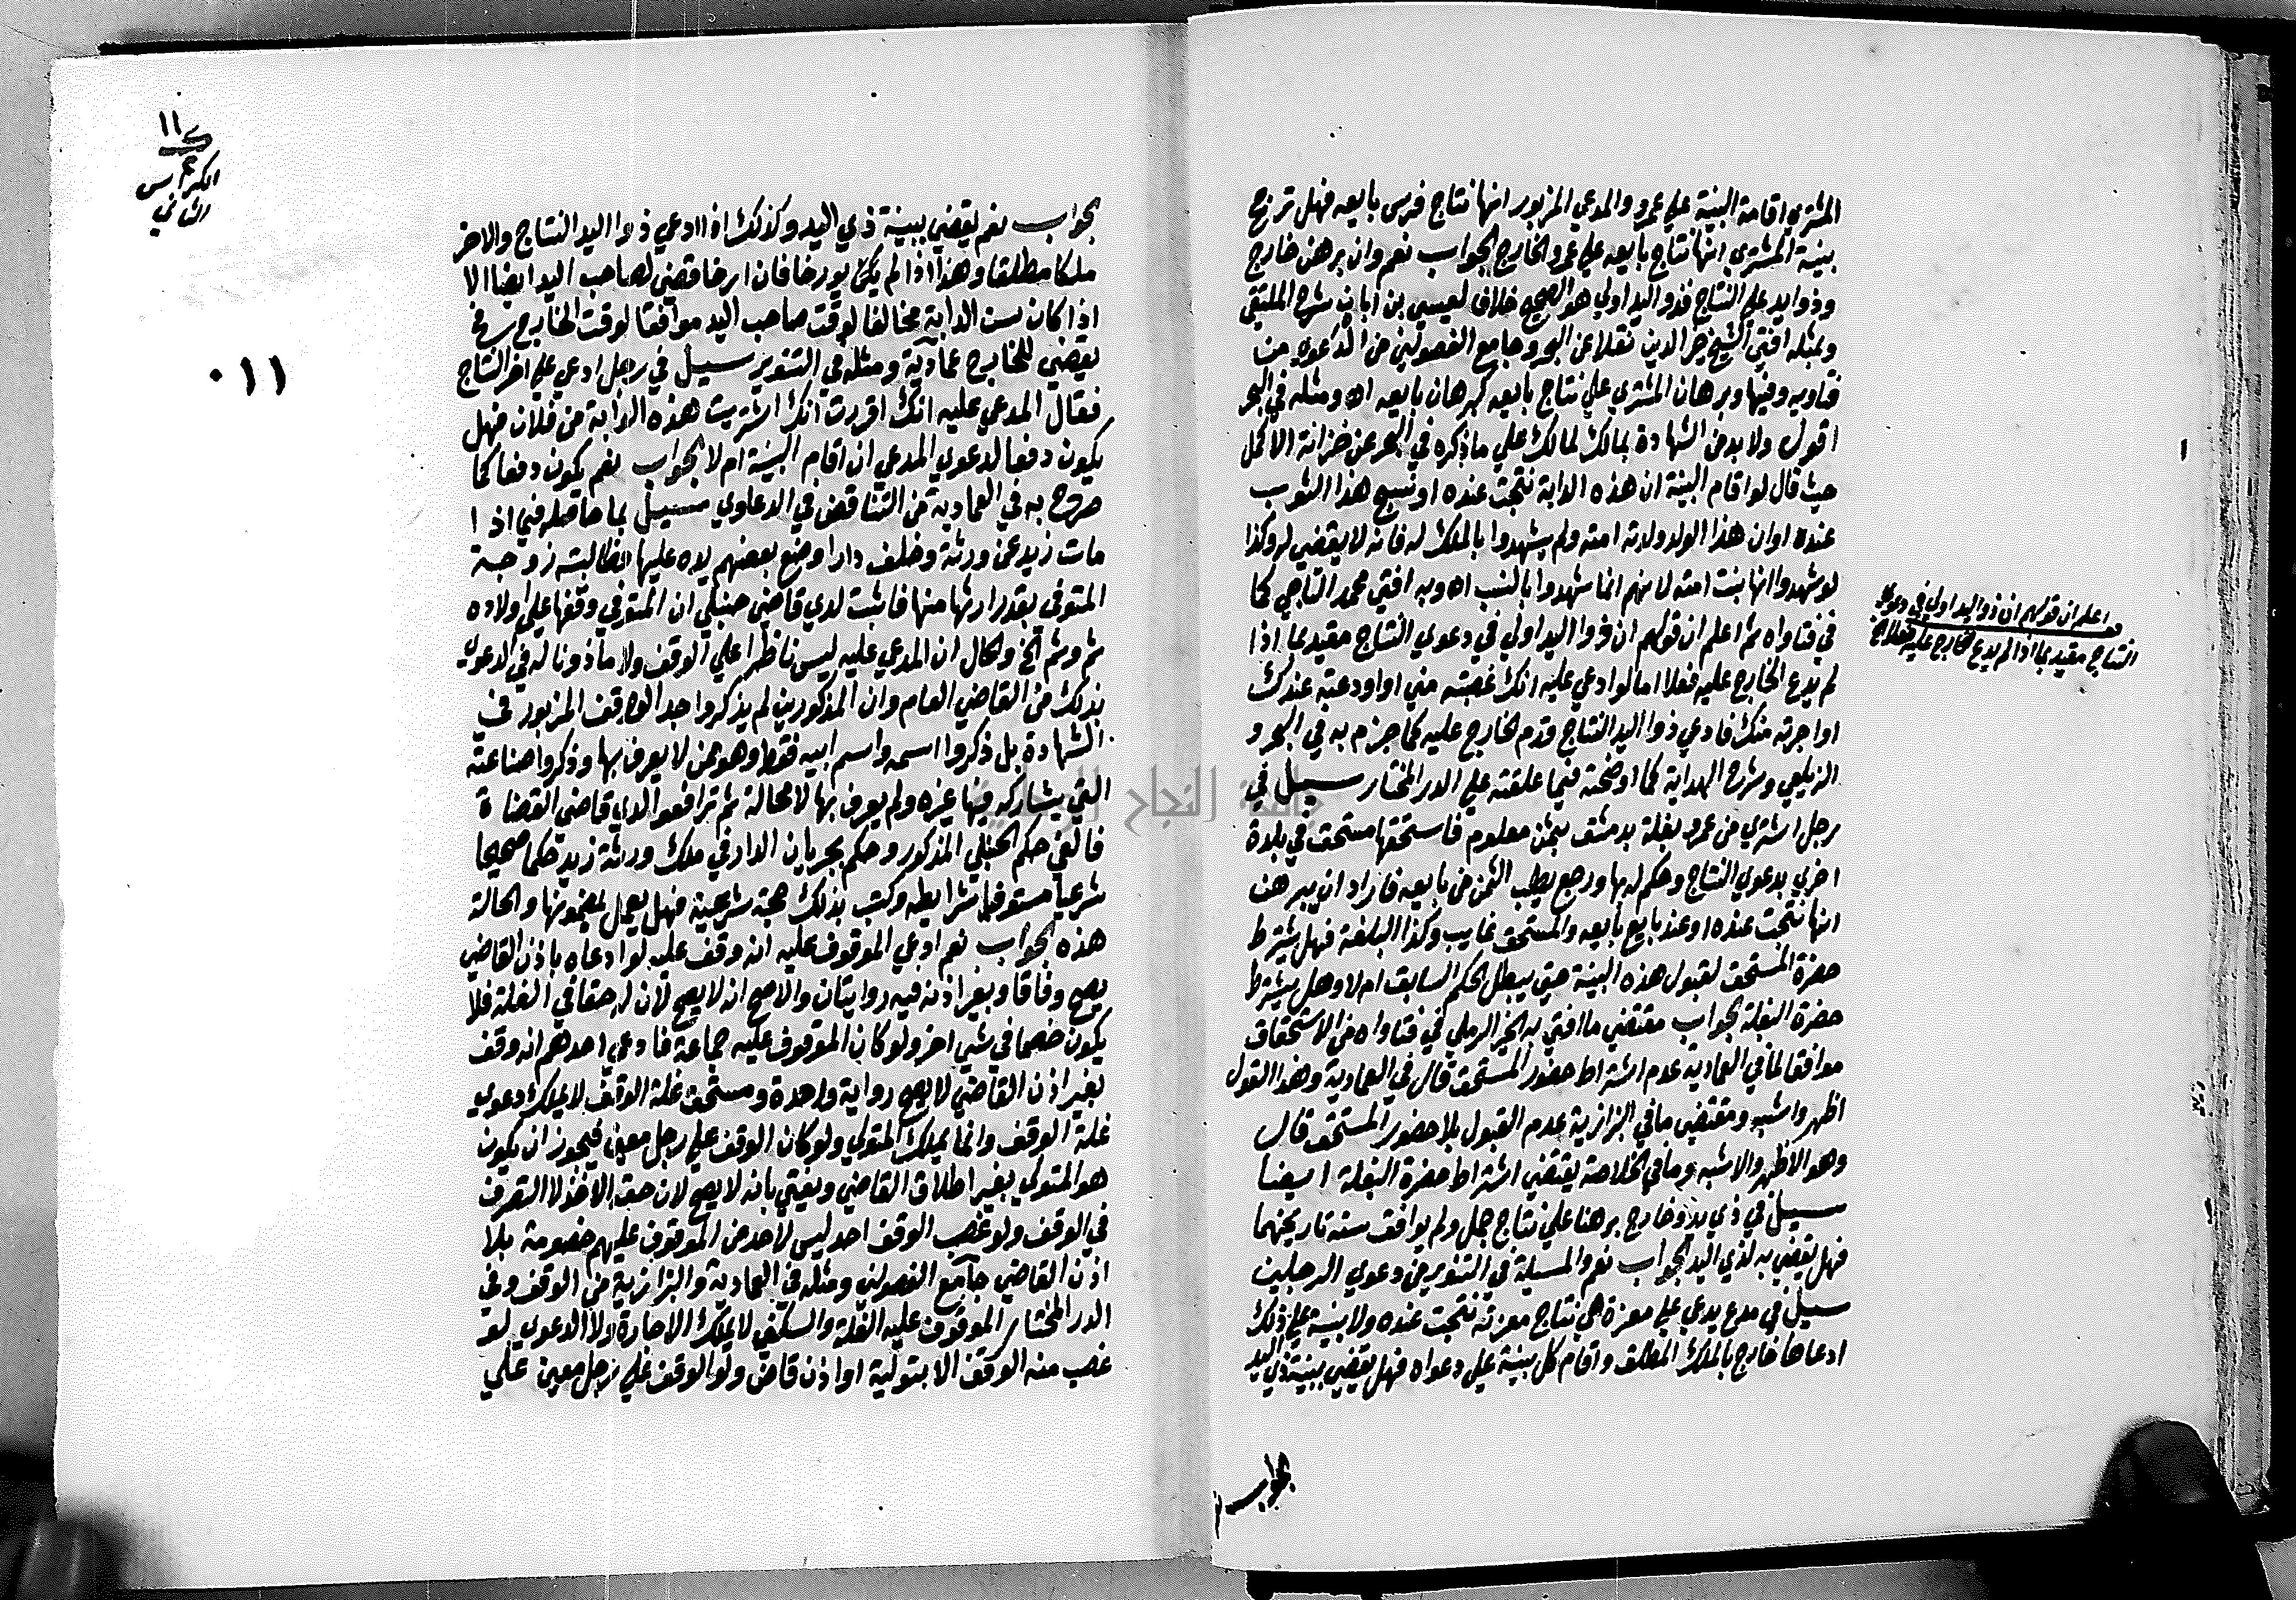 المشتري اقامة البينة علي عمرو والمدعي المزبور انها نتاج فرس بايعه فهل ترجح
بينة المشتري انها نتاج بايعه علي عمرو الخارج الجواب نعم وان برهن خارج
وذو يد علي النتاج فذو اليد اولي هو الصحيح خلافا لعيسي بن ابان شرح الملتقي
وبمثله افتي الشيخ خير الدين نقلا عن البحر وجامع الفصولين من الدعوي من
فتاويه وفيها وبرهان المشتري علي نتاج بايعه كبرهان بايعه اه ومثله في البحر
اقول ولا بد من الشهادة بالملك لمالك علي ما ذكره في البحر عن خزانة الاكمل
حيث قال لو اقام البينة ان هذه الدابة نتجت عنده او نسج هذا الثوب
عنده او ان هذا الولد ولدته امته ولم يشهدوا بالملك له فانه لا يقضي له وكذا
لو شهدوا انها بنت امته لانهم انما شهدوا بالنسب اه وبه افتي محمد التاجي كما
في فتاواه ثم اعلم ان قولهم ان ذو اليد اولي في دعوي النتاج مقيد بما اذا
لم يدع الخارج عليه فعلا اما لو ادعي عليه انك غصبته مني او اودعته عندك
او اجرته منك فادعي ذو اليد النتاج قدم الخارج عليه كما جزم به في البحر و
الزيلعي وشرح الهداية كما اوضحته فيما علقته علي الدر المختار سيل في
رجل اشتري من عمرو بغلة بدمشق بثمن معلوم فاستحقها مستحق في بلدة
اخري بدعوي النتاج وحكم له بها ورجع يطلب الثمن من بايعه فاراد ان يبرهن
انها نتجت عنده او عند بايع بايعه والمستحق غايب وكذا البلغة فهل يشترط
حضرة المستحق لقبول هذه البينة حتي يبطل الحكم السابق ام لا وهل يشترط
حضرة البغلة الجواب مقتضي ما افتي به الخير الرملي في فتاواه من الاستحقاق
موافقا لما في العمادية عدم اشتراط حضور المستحق قال في العمادية وهذا القول
اظهر واشبه ومقتضي ما في البزازية عدم القبول بلا حضور المستحق قال
وهو الاظهر والاشبه وما في الخلاصة يقتضي اشتراط حضرة البغلة ايضا
سيل في ذي يد وخارج برهنا علي نتاج جمل ولم يوافق سنه تاريخهما
فهل يقضي به لذي اليد الجواب نعم والمسيلة في التنوير من دعوي الرجلين
سيل في مدع يدعي علي معزة هي نتاج معزته نتجت عنده ولا بينة علي ذلك
ادعاها خارج بالملك المطلق واقام كل بينة علي دعواه فهل يقضي ببينة ذي اليد
الجواب نعم
اعلم ان قولهم ان ذو اليد اولي في دعوي
النتاج مقيد بما اذا لم يدع الخارج عليه فعلا الخ
١١
الكراس
الثاني
٠١١
الجواب نعم يقضي ببينة ذي اليد وكذلك اذا ادعي ذوا اليد النتاج والاخر
ملكا مطلقا وهذا اذا لم يكن يورخا فان ارخا قضي لصاحب اليد ايضا الا
اذا كان سن الدابة مخالفا لوقت صاحب اليد موافقا لوقت الخارج
يقضي للخارج عمادية ومثله في التنوير سيل في رجل ادعي علي اخر النتاج
فقال المدعي عليه انك اقررت انك اشتريت هذه الدابة من فلان فهل
يكون دفعا لدعوي المدعي ان اقام البينة ام لا الجواب نعم يكون دفعا كما
صرح به في العمادية من التناقض في الدعاوي سيل بما حاصله فيما اذا
مات زيد عن ورثة وخلف دارا وضع بعضهم يده عليها فطالبته زوجة
المتوفي بقدر ارثها منها فاثبت لدي قاضي حنبلي ان المتوفي وقفها علي اولاده
ثم وثم الخ والحال ان المدعي عليه ليس ناظرا علي الوقف ولا ماذونا له في الدعوي
بذلك من القاضي العام وان المذكورين لم يذكروا جد الواقف المزبور في
الشهادة بل ذكروا اسمه واسم ابيه فقط وهو ممن لا يعرف بها وذكروا صناعته
التي يشاركه فيها غيره ولم يعرف بها لا محالة ثم ترافعوا لدي قاضي القضاة
فالغي حكم الحنبلي المذكور وحكم بجريان الدار في ملك ورثة زيد حكما صحيحا
شرعيا مستوفيا شرايطه وكتب بذلك حجة شرعية فهل يعمل بمضمونها والحالة
هذه الجواب نعم ادعي الموقوف عليه انه وقف عليه لو ادعاه باذن القاضي
يصح وفاقا وبغير اذنه فيه روايتان والاصح انه لا يصح لان له حقا في الغلة فلا
يكون خصما في شي اخر ولو كان الموقوف عليه جماعة فادعي احدهم انه وقف
بغير اذن القاضي لا يصح رواية واحدة ومستحق غلة الوقف لا يملك دعوي
غلة الوقف وانما يملك المتولي ولو كان الوقف علي رجل معين فيجوز ان يكون
هو المتولي بغير اطلاق القاضي ويفتي بانه لا يصح لان حقه الاخذ لا التصرف
في الوقف ولو غصب الوقف احد ليس لاحد من الموقوف عليهم خصومة بلا
اذن القاضي جامع الفصولين ومثله في العمادية والبزازية من الوقف وفي
الدر المختار الموقوف عليه الغلة والسكني لا يملك الاجارة ولا الدعوي لو
غصب منه الوقف الا بتولية او اذن قاض ولو الوقف علي رجل معين علي
جامعة النجاح الوطنية